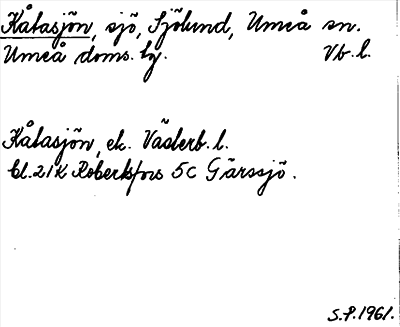 Kåtasjön, sjö, Sjölund, Umeå sn.
Umeå doms. lg. Vb. l.
Kåtasjön, ek. Västerb. l.
bl. 21K Robertsfors 5c Gärssjö.
S.P. 1961.